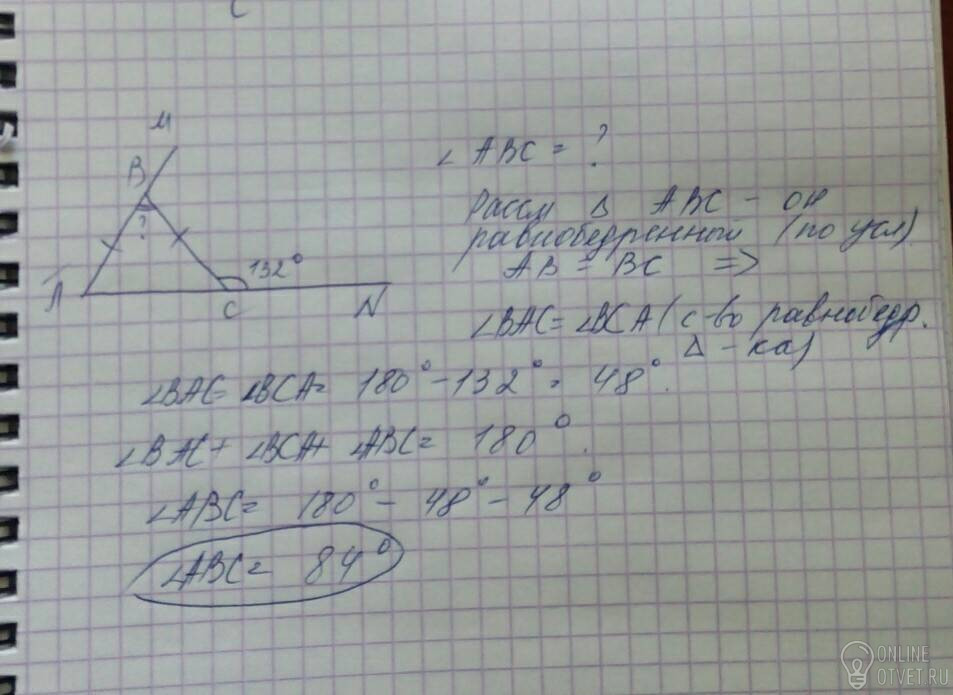 M
B
?
132°
A
C
N
∠ABC = ?
Рассм Δ ABC – он
равнобедренный (по усл)
AB = BC =>
∠BAC = ∠BCA (с-во равнобедр.
Δ-ка)
∠BAC= ∠BCA= 180° – 132° = 48°.
∠BAC+ ∠BCA+ ∠ABC= 180°.
∠ABC= 180° – 48° – 48°
∠ABC= 84°
ONLINE
OTVET.RU